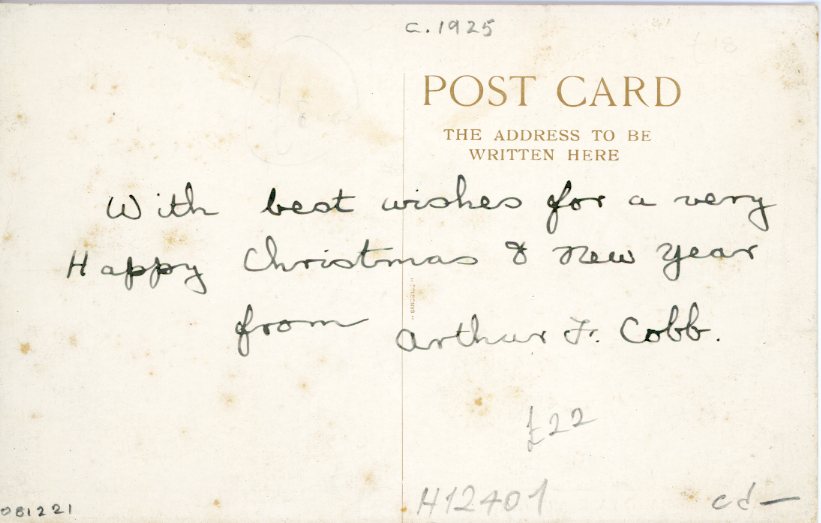 c.1925
POST CARD
THE ADDRESS TO BE
WRITTEN HERE
With best wishes for a very
Happy Christmas & New Year
from Arthur F. Cobb.
£22
H12401
cd-
081221